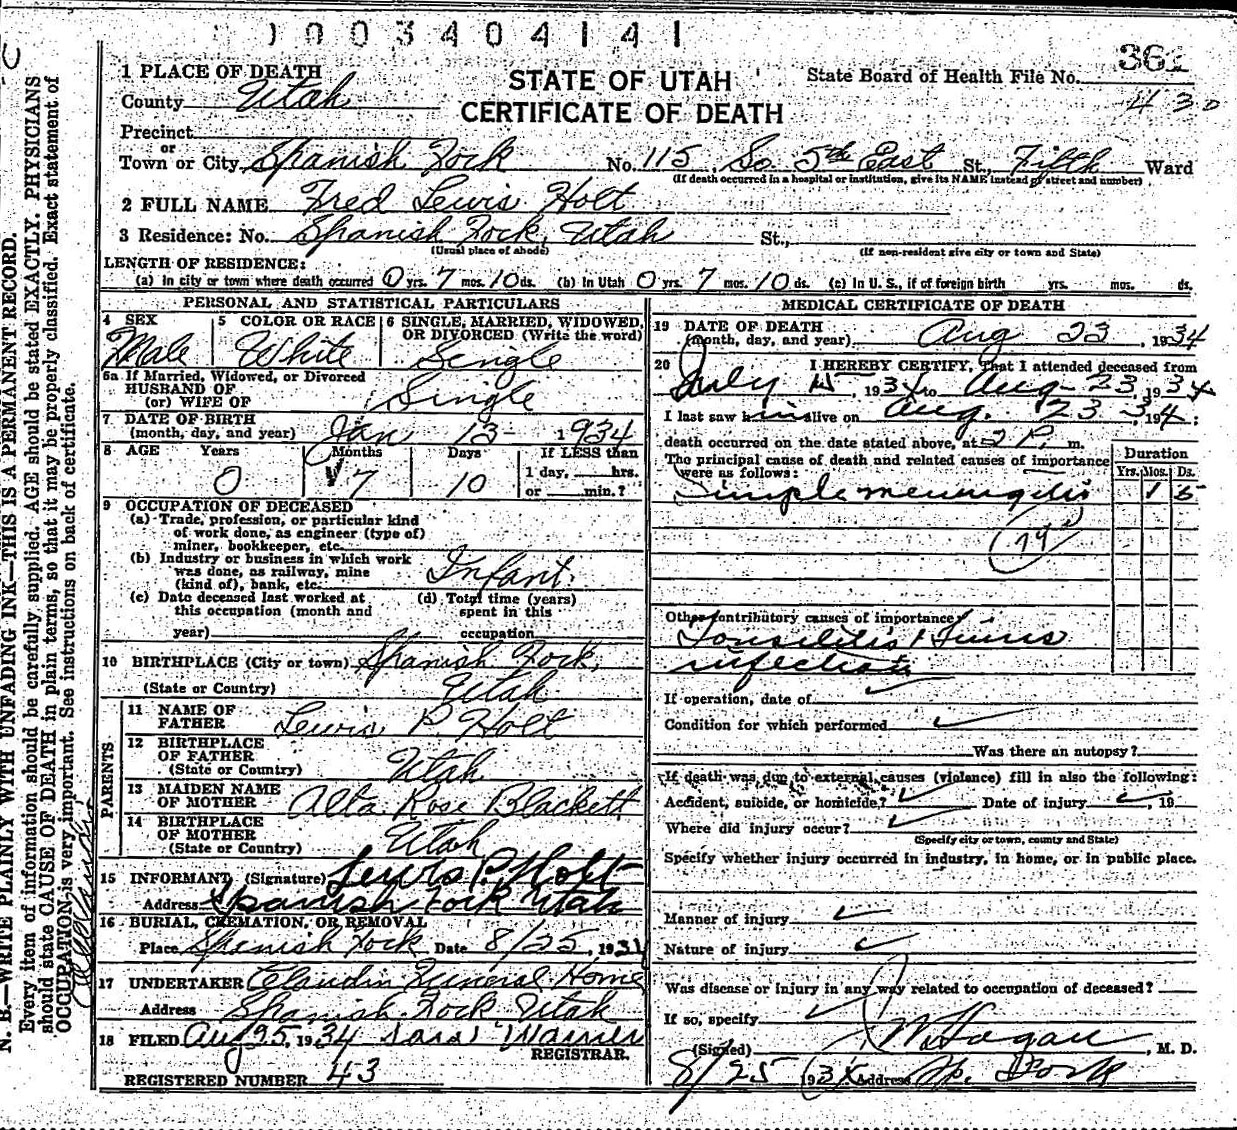 1003404141
361
430
1 PLACE OF DEATH
STATE OF UTAH
CERTIFICATE OF DEATH
State Board of Health File No.
County Utah
Precinct
or
Town or City Spanish Fork No. 115 So. 5th East St., Fifth Ward
(If death occurred in a hospital or institution, give its NAME instead of street and number)
2 FULL NAME Fred Lewis Holt
3 Residence: No. Spanish Fork, Utah St.,
(Usual place of abode) (If non-resident give city or town and State)
LENGTH OF RESIDENCE:
(a) In city or town where death occurred 0 yrs. 7 mos. 10 ds. (b) In Utah 0 yrs. 7 mos. 10 ds. (c) In U. S., if of foreign birth yrs. mos. ds.
PERSONAL AND STATISTICAL PARTICULARS
4 SEX Male
5 COLOR OR RACE White
6 SINGLE, MARRIED, WIDOWED, OR DIVORCED (Write the word) Single
6a If Married, Widowed, or Divorced
HUSBAND OF
(or) WIFE OF Single
7 DATE OF BIRTH
(month, day, and year) Jan 13- 1934
8 AGE Years Months Days If LESS than
0 7 10 1 day, hrs.
or min.?
9 OCCUPATION OF DECEASED
(a) Trade, profession, or particular kind
of work done, as engineer (type of)
miner, bookkeeper, etc.
(b) Industry or business in which work
was done, as railway, mine
(kind of), bank, etc. Infant.
(c) Date deceased last worked at
this occupation (month and
year)
(d) Total time (years)
spent in this
occupation
10 BIRTHPLACE (City or town) Spanish Fork,
(State or Country) Utah
PARENTS
11 NAME OF
FATHER Lewis P. Holt
12 BIRTHPLACE
OF FATHER
(State or Country) Utah
13 MAIDEN NAME
OF MOTHER Alta Rose Blackett
14 BIRTHPLACE
OF MOTHER
(State or Country) Utah
15 INFORMANT (Signature) Lewis P. Holt
Address Spanish Fork Utah
16 BURIAL, CREMATION, OR REMOVAL
Place Spanish Fork Date 8/25, 1934
17 UNDERTAKER Claudin Funeral Home
Address Spanish Fork Utah
18 FILED Aug 25, 1934 Warner
REGISTRAR.
REGISTERED NUMBER 43
MEDICAL CERTIFICATE OF DEATH
19 DATE OF DEATH
(month, day, and year) Aug 23, 1934
20 I HEREBY CERTIFY, That I attended deceased from
July 15, 1934 to Aug- 23, 1934
I last saw him alive on Aug. 23, 1934;
death occurred on the date stated above, at 2 P. m.
The principal cause of death and related causes of importance
were as follows:
Duration
Yrs. Mos. Ds.
Simple meningitis 1 5
79a
Other contributory causes of importance:
Tonsilitis & Sinus
infection
If operation, date of
Condition for which performed
Was there an autopsy?
If death was due to external causes (violence) fill in also the following:
Accident, suicide, or homicide? Date of injury , 19
Where did injury occur?
(Specify city or town, county and State)
Specify whether injury occurred in industry, in home, or in public place.
Manner of injury
Nature of injury
Was disease or injury in any way related to occupation of deceased?
If so, specify
(Signed) J W Hagan, M. D.
8/25 1934 Address Sp. Fork
N. B.—WRITE PLAINLY WITH UNFADING INK—THIS IS A PERMANENT RECORD.
Every item of information should be carefully supplied. AGE should be stated EXACTLY. PHYSICIANS
should state CAUSE OF DEATH in plain terms, so that it may be properly classified. Exact statement of
OCCUPATION is very important. See instructions on back of certificate.